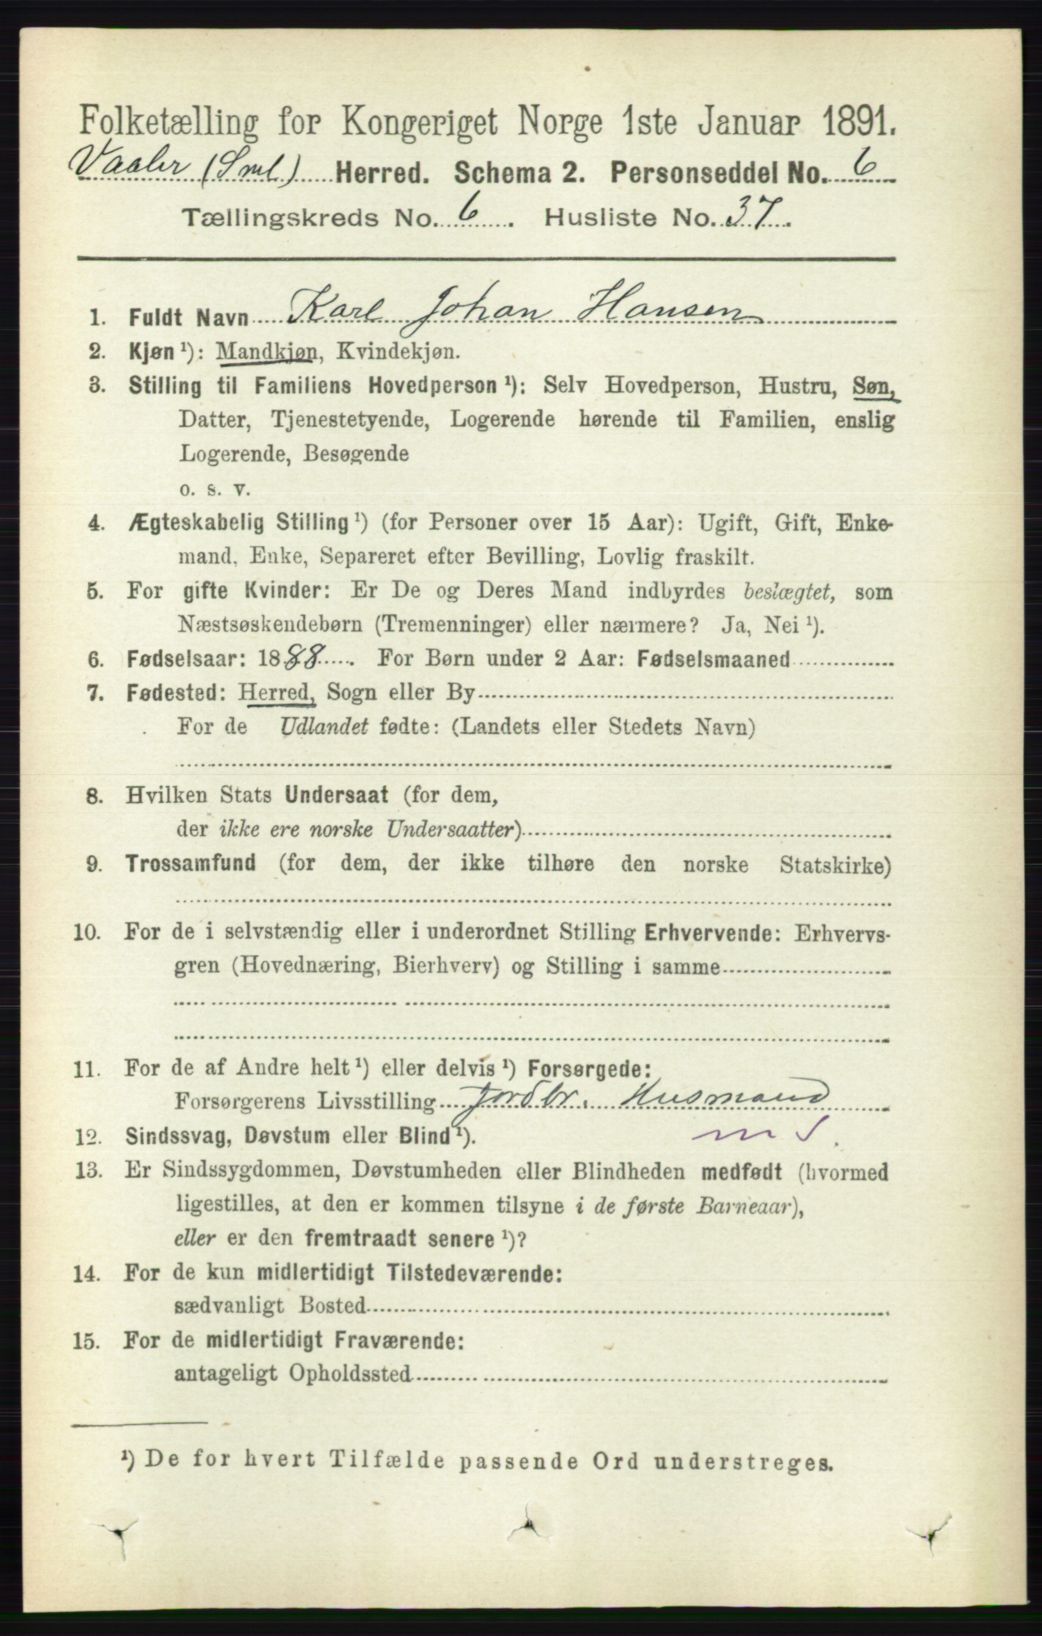 Folketælling for Kongeriget Norge 1ste Januar 1891.
Vaaler (Sml.) Herred. Schema 2. Personseddel No. 6
Tællingskreds No. 6. Husliste No. 37.
1. Fuldt Navn Karl Johan Hansen
2. Kjøn ¹): Mandkjøn, Kvindekjøn.
3. Stilling til Familiens Hovedperson ¹): Selv Hovedperson, Hustru, Søn,
Datter, Tjenestetyende, Logerende hørende til Familien, enslig
Logerende, Besøgende
o. s. v.
4. Ægteskabelig Stilling ¹) (for Personer over 15 Aar): Ugift, Gift, Enke-
mand, Enke, Separeret efter Bevilling, Lovlig fraskilt.
5. For gifte Kvinder: Er De og Deres Mand indbyrdes beslægtet, som
Næstsøskendebørn (Tremenninger) eller nærmere? Ja, Nei ¹).
6. Fødselsaar: 1888. For Børn under 2 Aar: Fødselsmaaned
7. Fødested: Herred, Sogn eller By
For de Udlandet fødte: (Landets eller Stedets Navn)
8. Hvilken Stats Undersaat (for dem,
der ikke ere norske Undersaatter)
9. Trossamfund (for dem, der ikke tilhøre den norske Statskirke)
10. For de i selvstændig eller i underordnet Stilling Erhvervende: Erhvervs-
gren (Hovednæring, Bierhverv) og Stilling i samme
11. For de af Andre helt ¹) eller delvis ¹) Forsørgede:
Forsørgerens Livsstilling Jordbr. Husmand
12. Sindssvag, Døvstum eller Blind ¹). m S.
13. Er Sindssygdommen, Døvstumheden eller Blindheden medfødt (hvormed
ligestilles, at den er kommen tilsyne i de første Barneaar),
eller er den fremtraadt senere ¹)?
14. For de kun midlertidigt Tilstedeværende:
sædvanligt Bosted
15. For de midlertidigt Fraværende:
antageligt Opholdssted
¹) De for hvert Tilfælde passende Ord understreges.